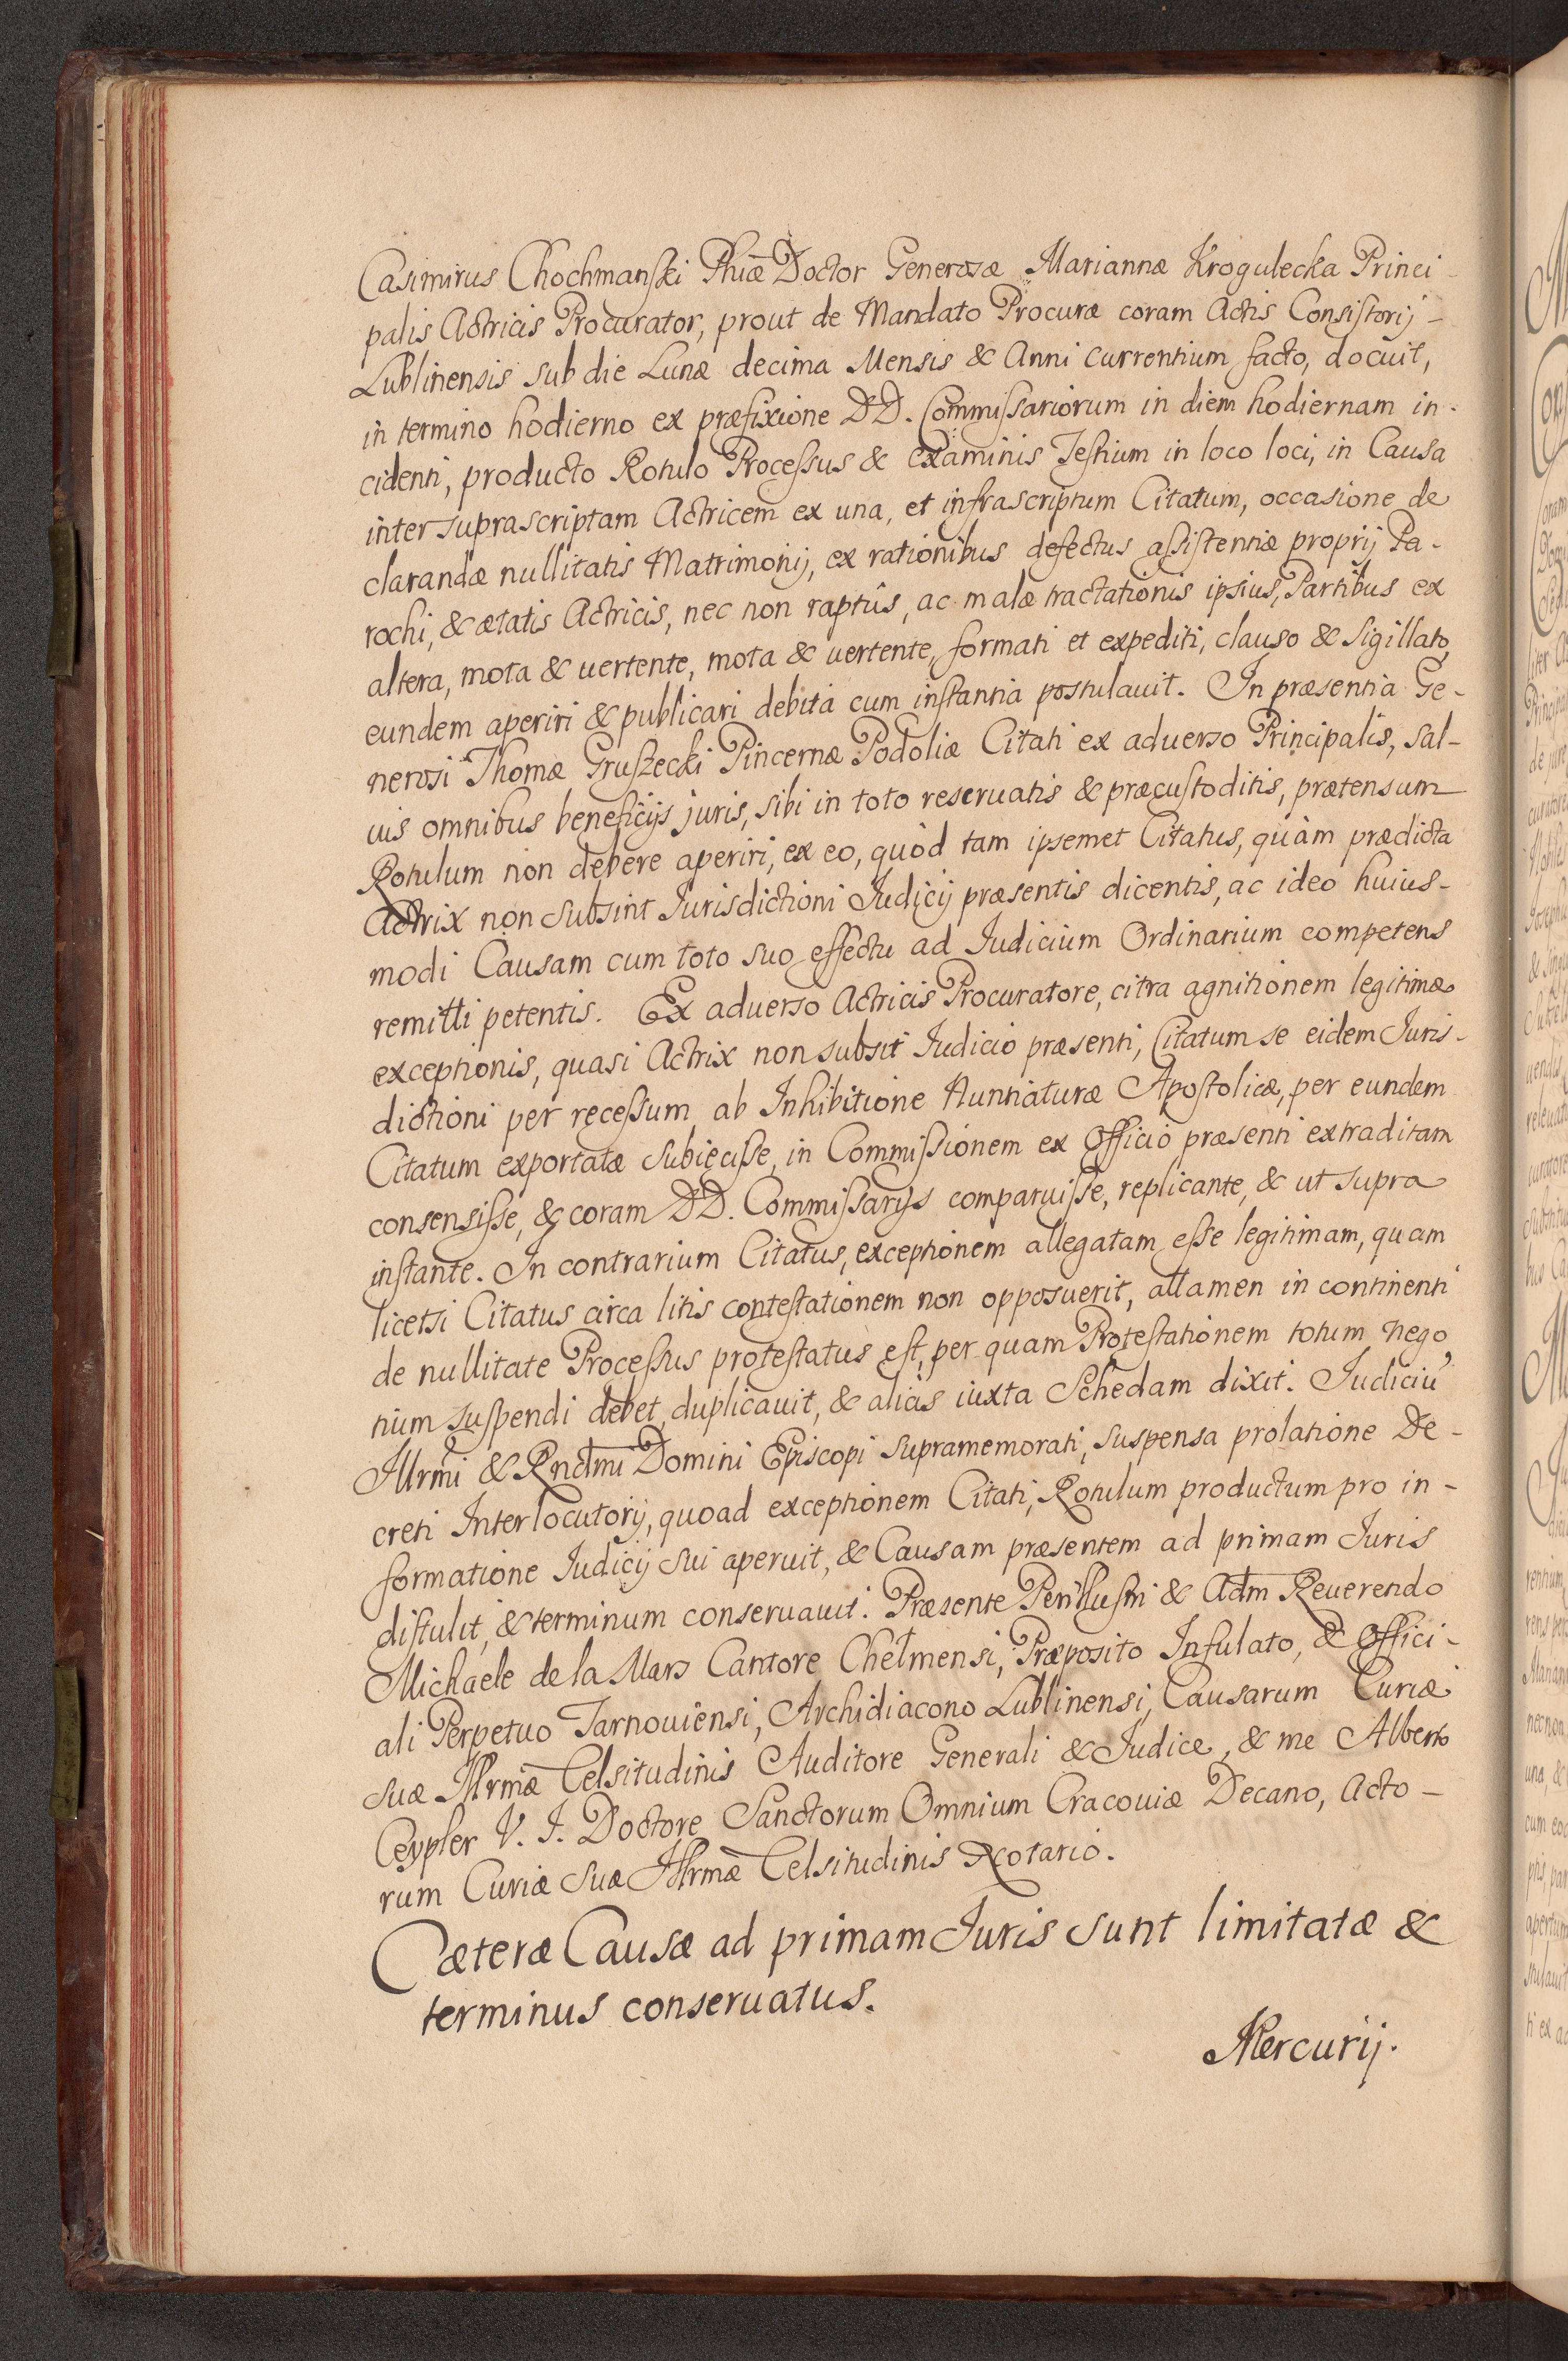 Casimirus Chochmanski Phiæ Doctor Generosæ Mariannæ Krogulecka Princi-
palis Actricis Procurator, prout de Mandato Procuræ coram Actis Consistorij
Lublinensis sub die Lunæ decima Mensis & Anni currentium facto, docuit,
in termino hodierno ex præfixione DD. Commissariorum in diem hodiernam in-
cidenti, producto Rotulo Processus & examinis Testium in loco loci, in Causa
inter suprascriptam Actricem ex una, et infrascriptum Citatum, occasione de
clarandæ nullitatis Matrimonij, ex rationibus defectus assistentiæ proprij Pa-
rochi, & ætatis Actricis, nec non raptûs, ac malæ tractationis ipsius, Partibus ex
altera, mota & uertente, mota & uertente, formati et expediti, clauso & sigillato,
eundem aperiri & publicari debita cum instantia postulauit. In præsentia Ge-
nerosi Thomæ Gruszecki Pincernæ Podoliæ Citati ex aduerso Principalis, sal-
uis omnibus beneficijs juris, sibi in toto reseruatis & præcustoditis, prætensum
Rotulum non debere aperiri, ex eo, quòd tam ipsemet Citatus, quàm prædicta
Actrix non subsint Iurisdictioni Iudicij præsentis dicentis, ac ideo huius-
modi Causam cum toto suo effectu ad Iudicium Ordinarium competens
remitti petentis. Ex aduerso Actricis Procuratore, citra agnitionem legitimæ
exceptionis, quasi Actrix non subsit Iudicio præsenti, Citatum se eidem Iuris-
dictioni per recessum ab Inhibitione Nuntiaturæ Apostolicæ, per eundem
Citatum exportatæ subiecisse, in Commissionem ex Officio præsenti extraditam
consensisse, & coram DD. Commissarijs comparuisse, replicante, & ut supra
instante. In contrarium Citatus, exceptionem allegatam esse legitimam, quam
licetsi Citatus circa litis contestationem non opposuerit, attamen in continenti
de nullitate Processus protestatus est, per quam Protestationem totum nego,
tium suspendi debet, duplicauit, & alias iuxta Schedam dixit. Iudiciū
Illrmi & Rndmi Domini Episcopi supramemorati, suspensa prolatione De-
creti Interlocutorij, quoad exceptionem Citati, Rotulum productum pro in-
formatione Iudicij sui aperuit, & Causam præsentem ad primam Iuris
distulit, & terminum conseruauit. Præsente Perillustri & Adm Reuerendo
Michaele de la Mars Cantore Chelmensi, Præposito Infulato, & Offici-
ali Perpetuo Tarnouiensi, Archidiacono Lublinensi, Causarum Curiæ
suæ Illrmæ Celsitudinis Auditore Generali & Iudice, & me Alberto
Ceypler V. I. Doctore Sanctorum Omnium Cracouiæ Decano, Acto-
rum Curiæ Suæ Illrmæ Celsitudinis Notario.
Cæteræ Causæ ad primam Iuris sunt limitatæ &
terminus conseruatus.
Mercurij.